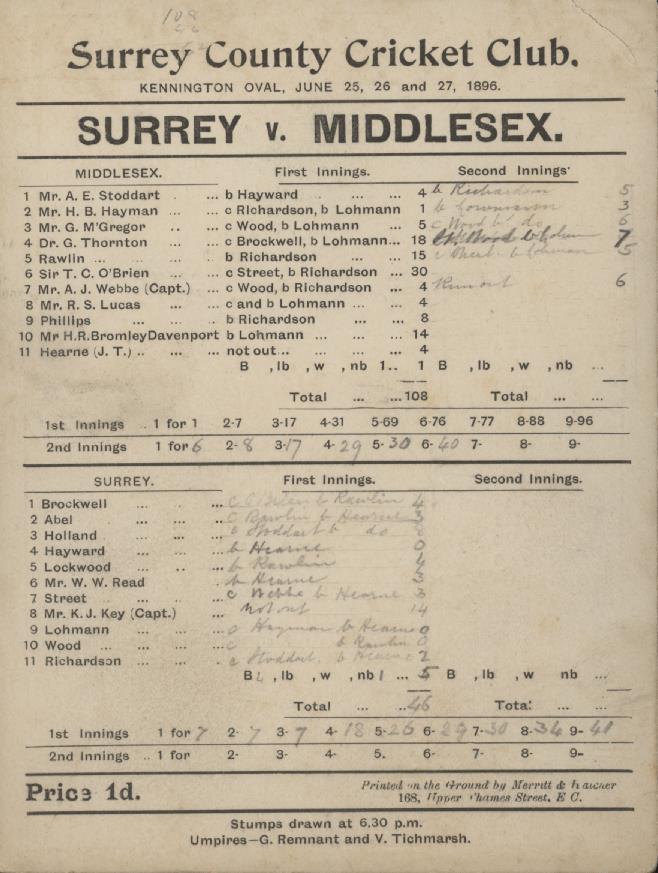 108
Surrey County Cricket Club.
KENNINGTON OVAL, JUNE 25, 26 and 27, 1896.
SURREY v. MIDDLESEX.
MIDDLESEX. First Innings. Second Innings'
1 Mr. A. E. Stoddart ... b Hayward ... ... ... 4 b Richardson 5
2 Mr. H. B. Hayman ... ... c Richardson, b Lohmann 1 b 3
3 Mr. G. M'Gregor .. ... c Wood, b Lohmann ... 5 c Wood b do 6
4 Dr. G. Thornton ... ... c Brockwell, b Lohmann... 18 Wood b 7
5 Rawlin ... ... ... b Richardson ... ... 15 c b Lohman 5
6 Sir T. C. O'Brien ... ... c Street, b Richardson ... 30
7 Mr. A. J. Webbe (Capt.) ... c Wood, b Richardson ... 4 Run out 6
8 Mr. R. S. Lucas ... c and b Lohmann ... ... 4
9 Phillips ... ... ... b Richardson ... ... 8
10 Mr H.R.BromleyDavenport b Lohmann ... ... ... 14
11 Hearne (J. T.) .. ... ... not out... ... ... ... 4
B , lb , w , nb 1.. 1 B , lb , w , nb ...
Total ... ...108 Total ... ...
1st Innings 1 for 1 2-7 3-17 4-31 5-69 6-76 7-77 8-88 9-96
2nd Innings 1 for 6 2- 8 3-17 4- 29 5- 30 6- 40 7- 8- 9-
SURREY. First Innings. Second Innings.
1 Brockwell ... ... ... c O'Brien b Rawlin 4
2 Abel ... ... ... c Rawlin b Hearne 3
3 Holland ... ... ... c Stoddart b do
4 Hayward ... ... ... b Hearne 0
5 Lockwood ... .. ... b Rawlin 4
6 Mr. W. W. Read ... b Hearne 3
7 Street ... ... ... c Webbe b Hearne 3
8 Mr. K. J. Key (Capt.) ... not out 14
9 Lohmann ... ... ... c Hayman b Hearne 0
10 Wood ... ... ... c b Rawlin 0
11 Richardson ... ... ... c Stoddart. b Hearne 2
B 4 , lb , w , nb 1 ... 5 B , lb , w nb ...
Total ... ...46 Total ... ...
1st Innings 1 for 7 2- 7 3- 7 4- 18 5- 26 6- 29 7- 30 8- 34 9- 41
2nd Innings .. 1 for 2- 3- 4- 5. 6- 7- 8- 9-
Price 1d.
Printed on the Ground by Merritt & Hatcher
168, Upper Thames Street, E C.
Stumps drawn at 6.30 p.m.
Umpires—G. Remnant and V. Tichmarsh.